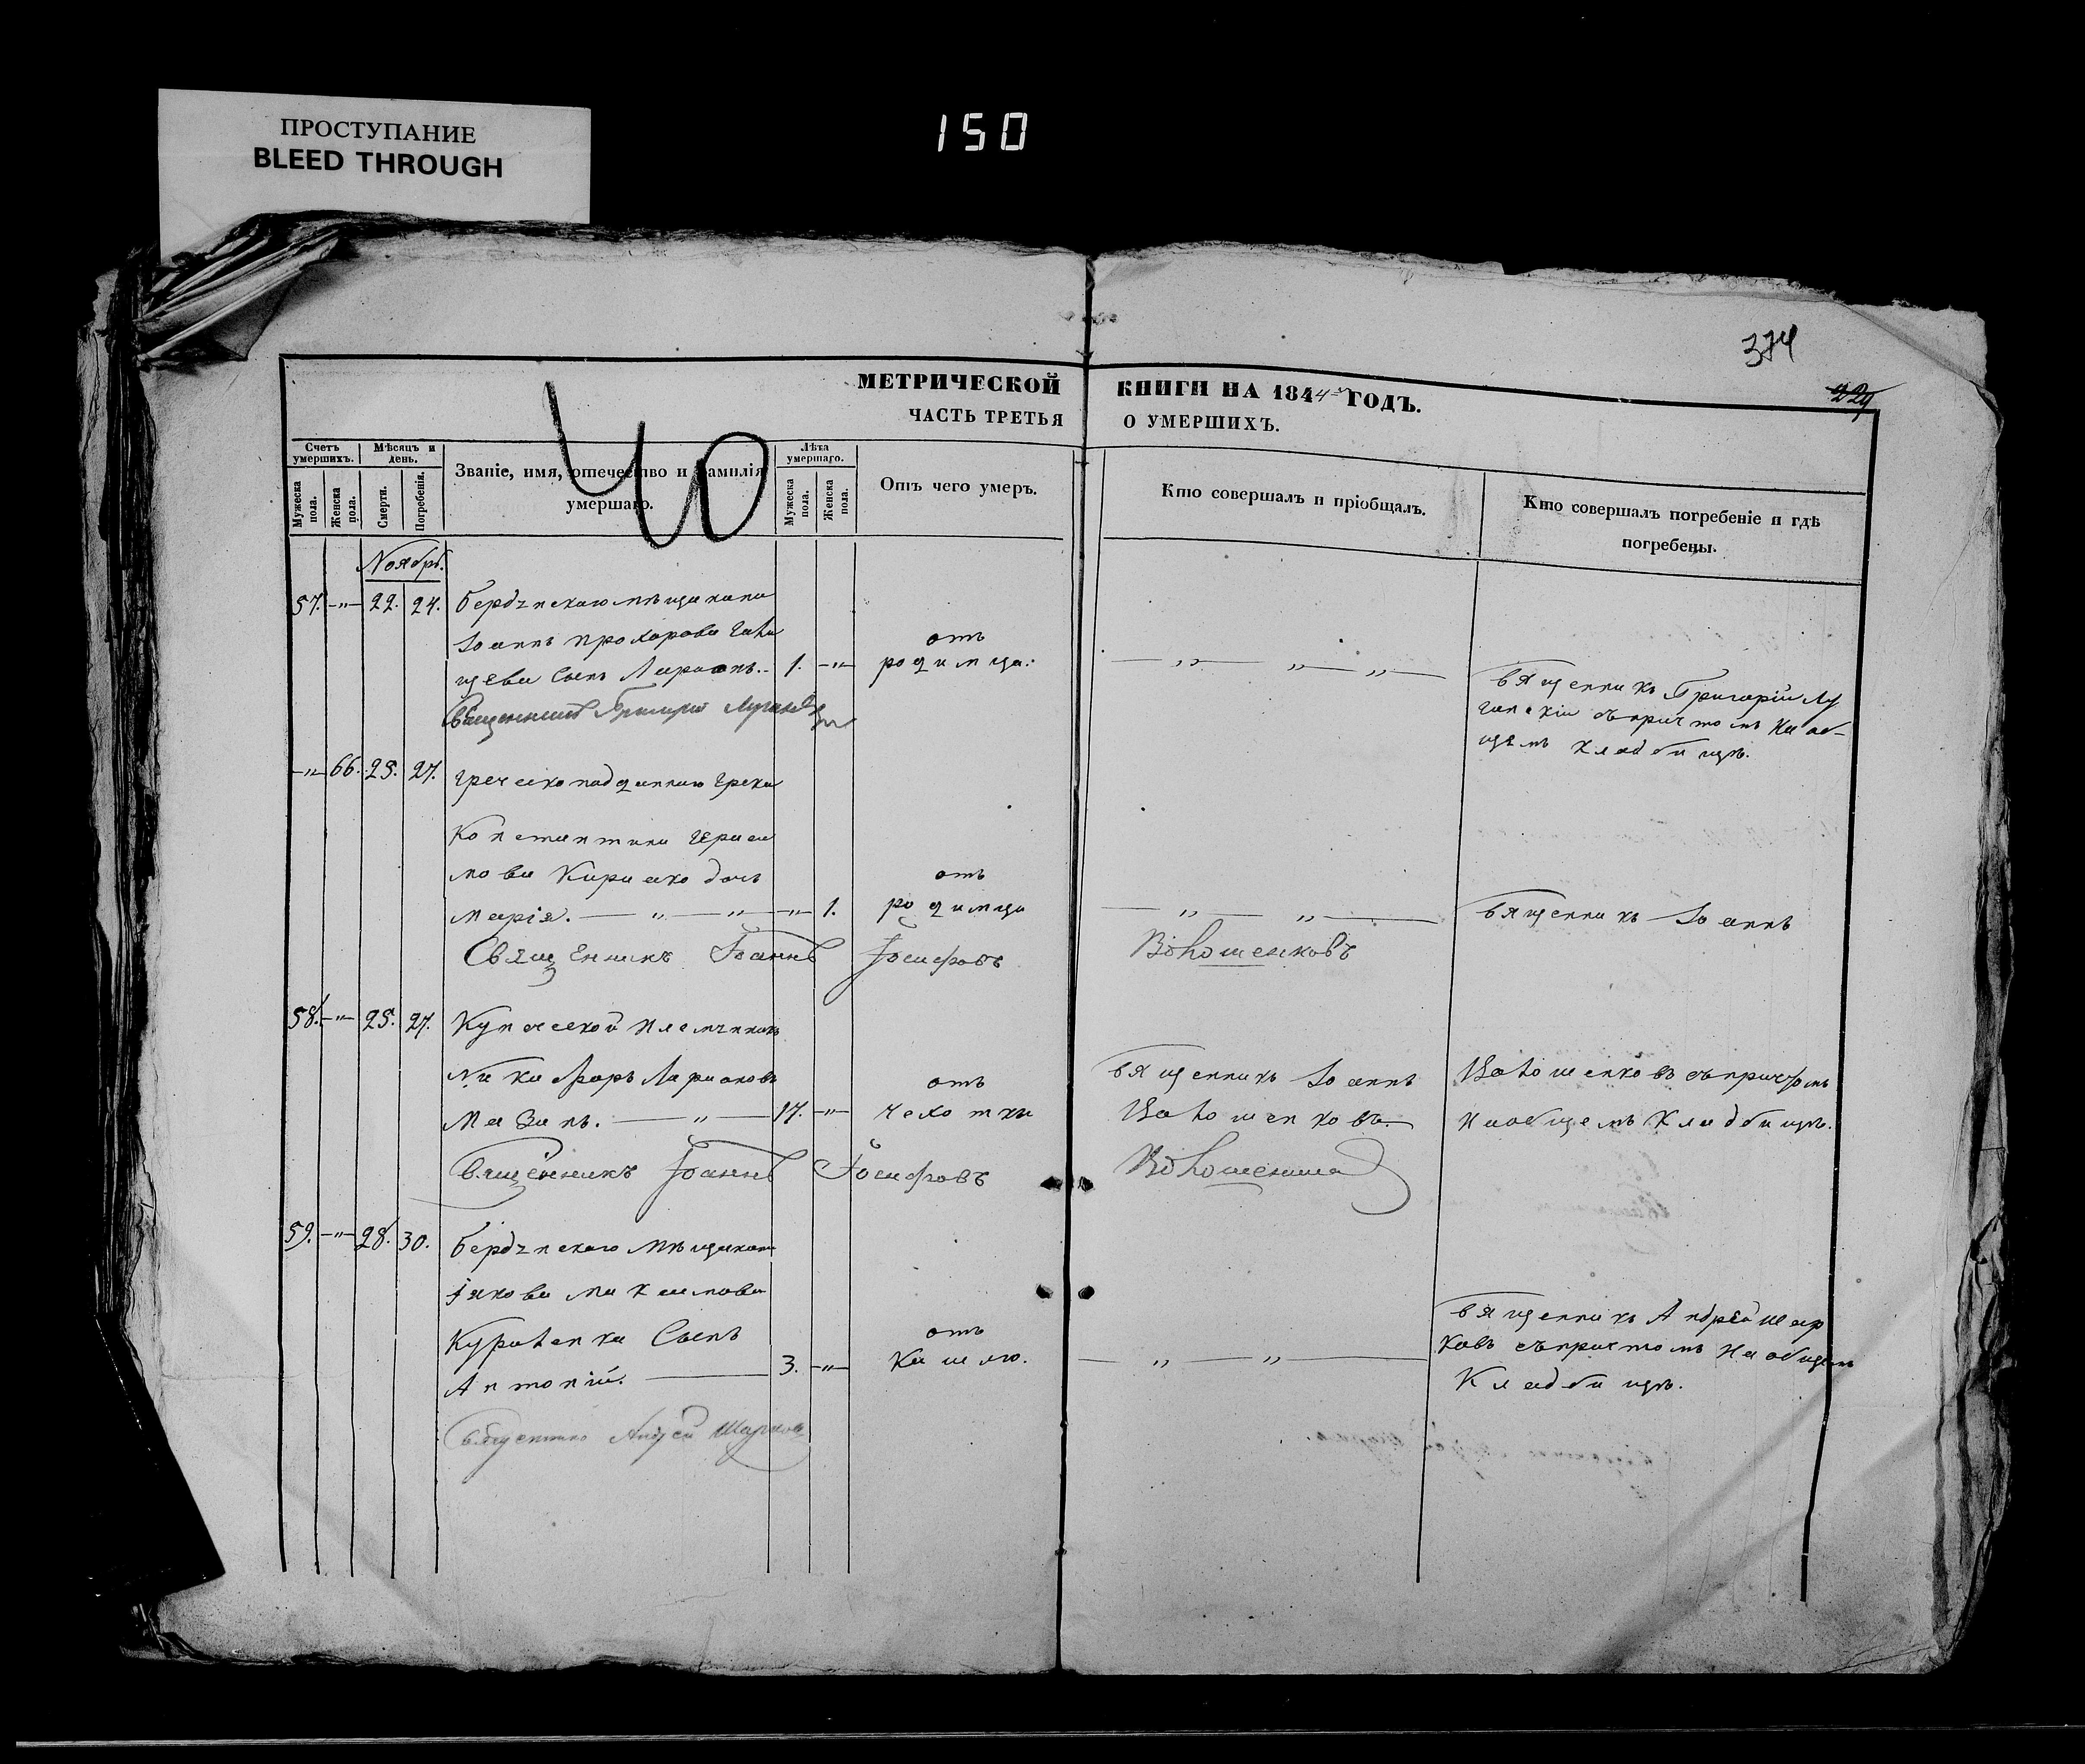 ПРОСТУПАНИЕ
BLEED THROUGH
150
374
229
МЕТРИЧЕСКОЙ КНИГИ НА 1844 ГОДЪ.
ЧАСТЬ ТРЕТЬЯ О УМЕРШИХЪ.
40
Счетъ умершихъ.
Мѣсяцъ и день.
Званіе, имя, отечество и фамилія умершаго.
Лѣта умершаго.
Отъ чего умеръ.
Кто совершалъ и пріобщалъ.
Кто совершалъ погребеніе и гдѣ погребены.
Мужеска пола.
Женска пола.
Смерти.
Погребенія.
Мужеска пола.
Женска пола.
Ноябрь.
57. —"— 22. 24. бердянскаго мѣщанина
Іоанна Прохорова
сынъ Ларіонъ. 1. —"—
отъ
родимца.
— " — " — " —
Священникъ Григорій Лу
ганскій съ причтомъ на об-
щемъ кладбищѣ.
Священникъ Григорій
—"— 66. 25. 27. греческоподданнаго грека
Константина Гераси
мова Кирияко дочь
Марія. — " — " — " — 1.
отъ
родимца
— " — " —
Священникъ Іоаннъ
Священникъ Іоаннъ Іосифовъ Волошенковъ
58. —"— 25. 27. Купеческой племянникъ
Никифоръ Ларионовъ
Мазинъ. — " — 17. —"—
отъ
чехотки
Священникъ Іоаннъ
Волошенковъ.
Волошенковъ съ причтомъ
на общемъ кладбищѣ.
Священникъ Іоаннъ Іосифовъ
59. —"— 28. 30. бердянскаго мѣщанина
Якова Максимова
Сынъ
Антоній. — 3. —"—
отъ
кашлю.
— " — " —
Священникъ Андрей Шар
ковъ съ причтомъ на общемъ
кладбищѣ.
Священникъ Андрей Шарковъ